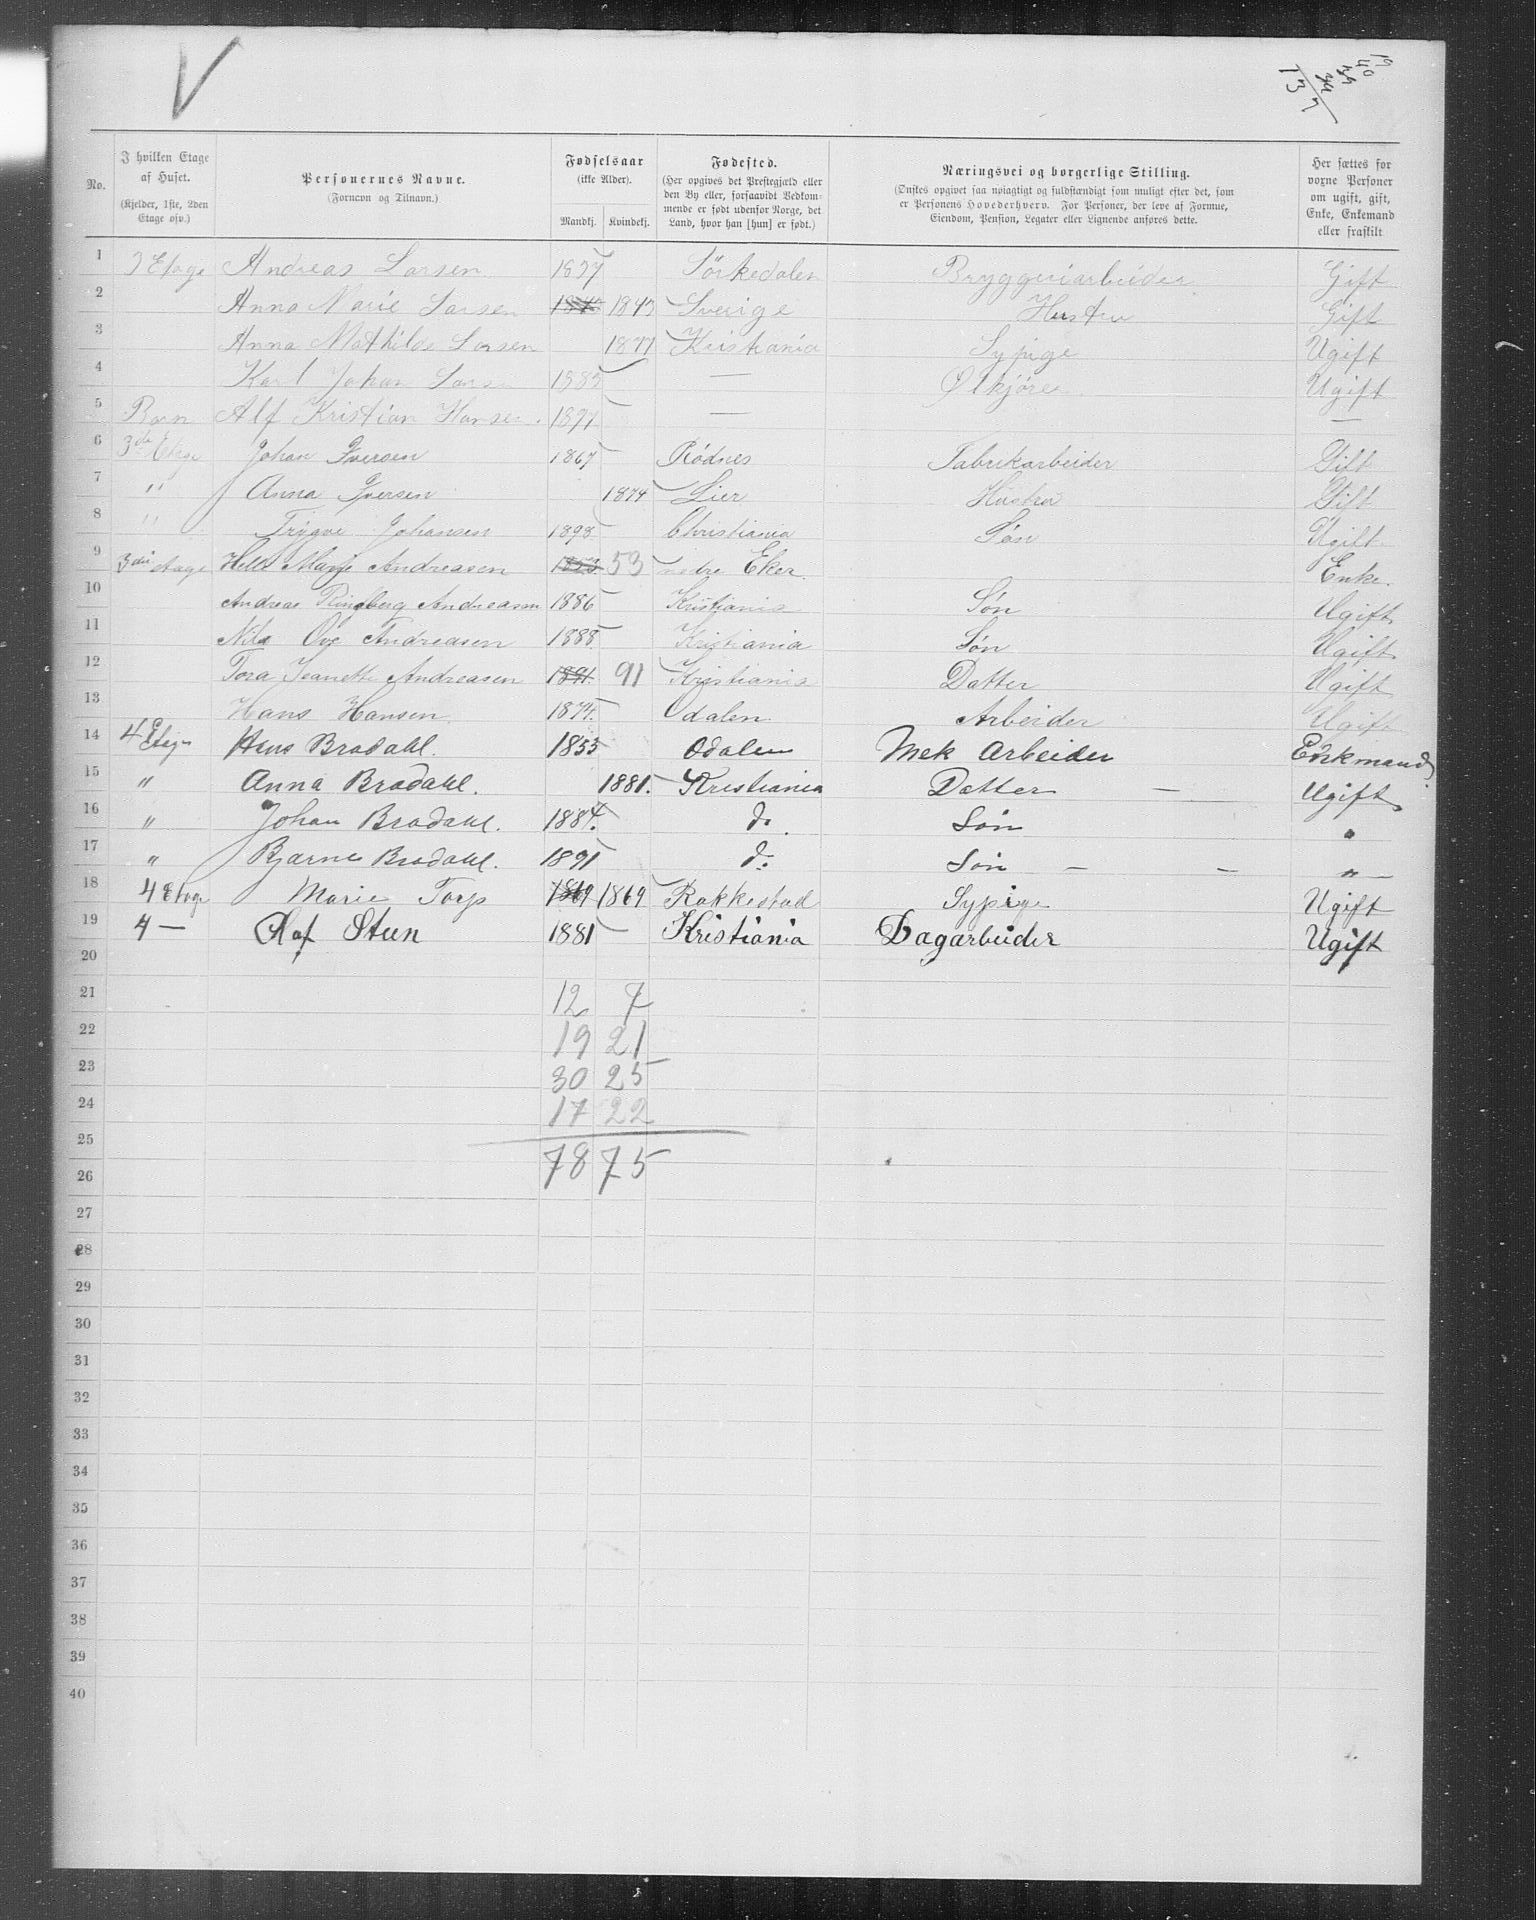 V
19
40
39
39
137
No.
I hvilken Etage af Huset. (Kjelder, 1ste, 2den Etage osv.)
Personernes Navne. (Fornavn og Tilnavn.)
Fødselsaar (ikke Alder). Mandkj. Kvindekj.
Fødested. (Her opgives det Prestegjæld eller den By eller, forsaavidt Vedkommende er født udenfor Norge, det Land, hvor han [hun] er født.)
Næringsvei og borgerlige Stilling. (Ønskes opgivet saa nøiagtigt og fuldstændigt som muligt efter det, som er Personens Hovederhverv. For Personer, der leve af Formue, Eiendom, Pension, Legater eller Lignende anføres dette.)
Her sættes for voxne Personer om ugift, gift, Enke, Enkemand eller fraskilt
1 3 Etage Andreas Larsen 1837 Sörkedalen Bryggeriarbeider Gift
2 Anna Marie Larsen 1843 Sverige Hustru Gift
3 Anna Mathilde Larsen 1877 Kristiania Sypige Ugift
4 Karl Johan Larsen 1885 — Ølkjører Ugift
5 Barn Alf Kristian Hansen 1897 — —
6 3die Etage Johan Iversen 1867 Rödnes Fabrikarbeider Gift
7 " Anna Iversen 1874 Lier Hustru Gift
8 " Trygve Johansen 1898 Christiania Søn Ugift
9 3die etage Marje Andreasen 1853 53 nedre Eker Enke.
10 Andreas Ringberg Andreasen 1886 Kristiania Søn Ugift
11 Nils Ove Andreasen 1888 Kristiania Søn Ugift
12 Tora Jeanette Andreasen 1891. 91 Kristiania Datter Ugift
13 Hans Hansen 1874. Odalen Arbeider Ugift
14 4 Etage Hans Bradahl. 1855 Odalen Mek Arbeider Enkmand
15 " Anna Bradahl. 1881. Kristiania Datter — Ugift
16 " Johan Bradahl. 1884. do. Søn "
17 " Bjarne Bradahl. 1891 do. Søn — — " —
18 4 Etage Marie Torp 1869 1869 Rakkestad Sypige Ugift
19 4 — Olaf Steen 1881 Kristiania Dagarbeider Ugift
20
21 12 7
22 19 21
23 30 25
24 17 22
25
26 78 75
27
28
29
30
31
32
33
34
35
36
37
38
39
40